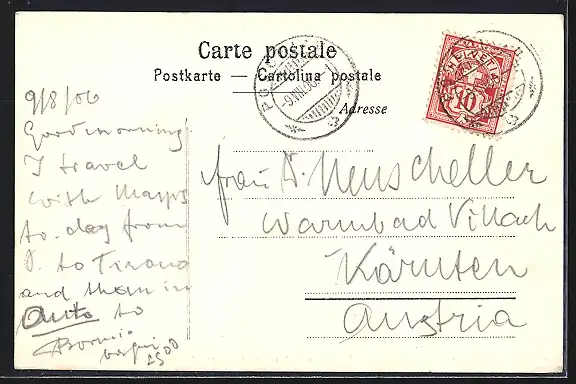 Carte postale
Postkarte — Cartolina postale
Adresse
HELVETIA
10
9/8/06
Good morning!
I travel
with Mayrs
to-day from
P. to Tirano
and then in
Auto to
Bormio
Frau D. Neuscheller
Warmbad Villach
Kärnten
Austria